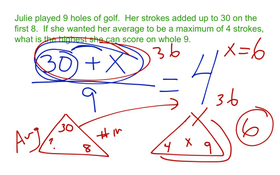 Julie played 9 holes of golf. Her strokes added up to 30 on the
first 8. If she wanted her average to be a maximum of 4 strokes,
what is the highest she can score on whole 9.
30 + x 36 x = 6
= 4
9
36
Avg 30 #
? 8 4 x 9 6